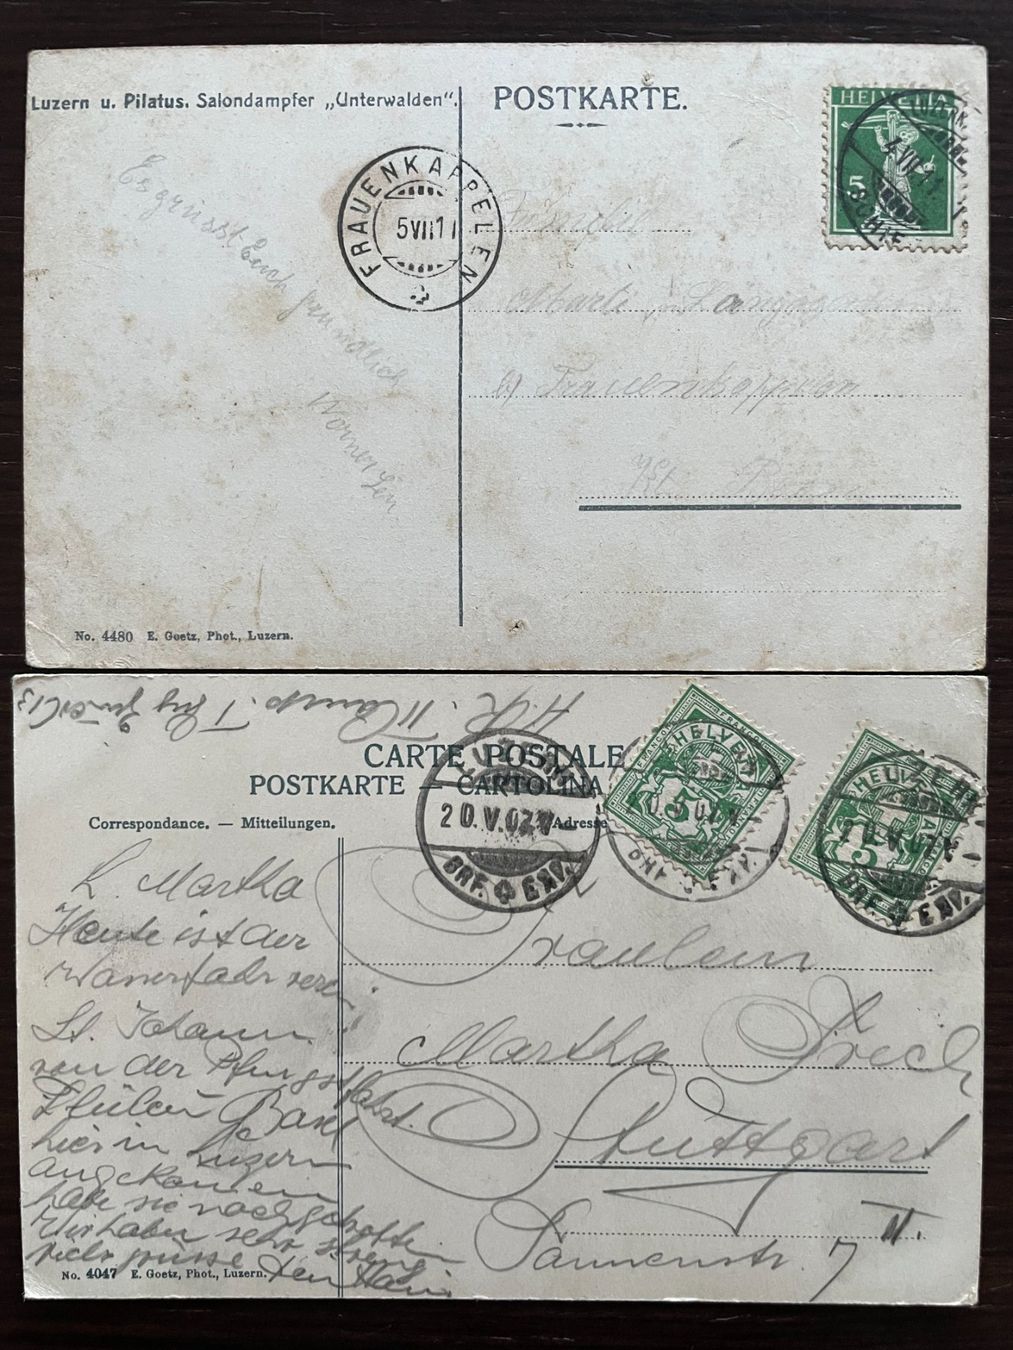 Luzern u. Pilatus. Salondampfer „Unterwalden“.
POSTKARTE.
HELVETIA
5
FRAUENKAPPELEN
5 VII 11
Es grüsst Euch freundlich
Familie
Marti
Frauenkappelen
Kt. Bern
No. 4480 E. Goetz, Phot., Luzern.
CARTE POSTALE
POSTKARTE — CARTOLINA
Correspondance. — Mitteilungen.
Adresse
20.V.07
BRF. EXP.
HELVETIA
FRANCO
5
HELVETIA
FRANCO
5
BRF. EXP.
L. Martha
Heute ist der
St. Johann
von der Pfingstfahrt.
Basel
hier in Luzern
angekommen
habe sie noch getroffen
Wir haben sehr streng
viele grüsse
Fräulein
Martha
Stuttgart
Tannenstr. 7 II.
No. 4047 E. Goetz, Phot., Luzern.